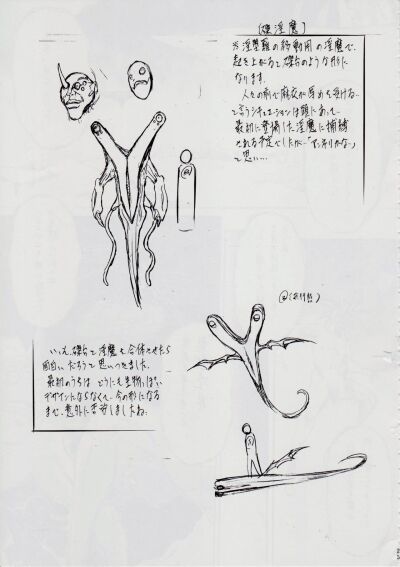 【磔淫魔】
※淫獣龍の移動用の淫魔で
起き上がると磔台のような形に
なります。
人々の前で麻衣が辱めを受ける…
て言うシチュエーションは頭にあって、
最初に登場した淫魔に捕縛
される予定でしたが…
て思い…
@(飛行形態)
いっそ、磔台と淫魔を合体させたら
面白いだろうて思いつきました。
最初のうちは、どうにも生物っぽい
デザインにならなくて、今の形になる
まで、意外に苦労しましたね。